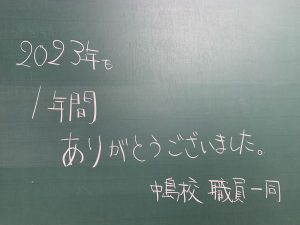 2023年も
1年間
ありがとうございました。
中島校 職員一同